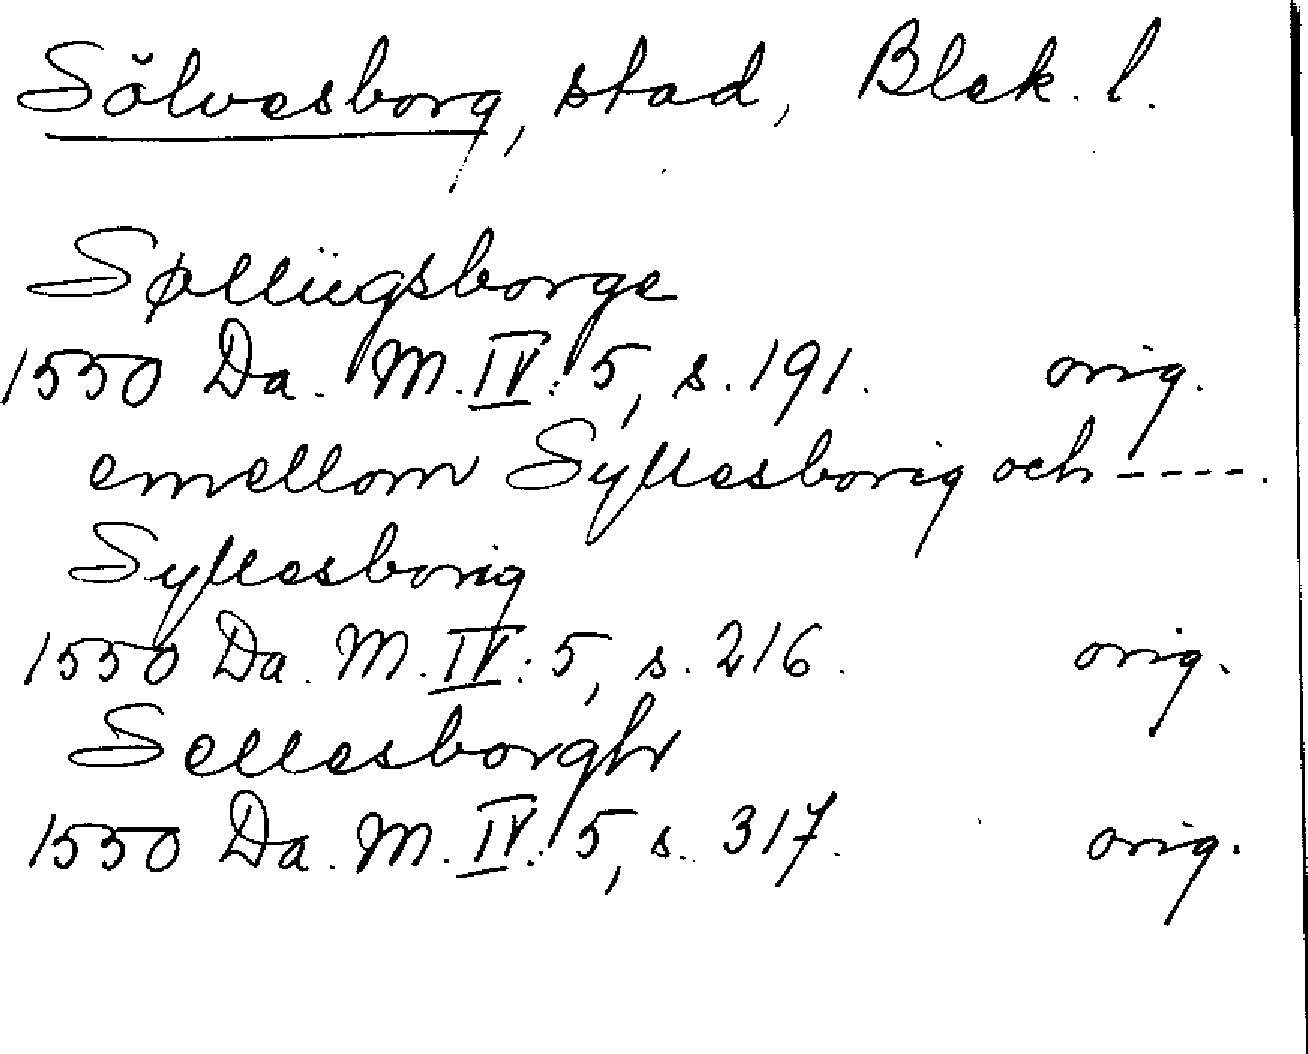 Sölvesborg, stad, Blek. l.
Søllingsborge
1550 Da. M. IV: 5, s. 191. orig.
emellom Syllesborig och ----.
Syllesborig
1550 Da. M. IV: 5, s. 216. orig.
Sellesborgh
1550 Da. M. IV: 5, s. 317. orig.